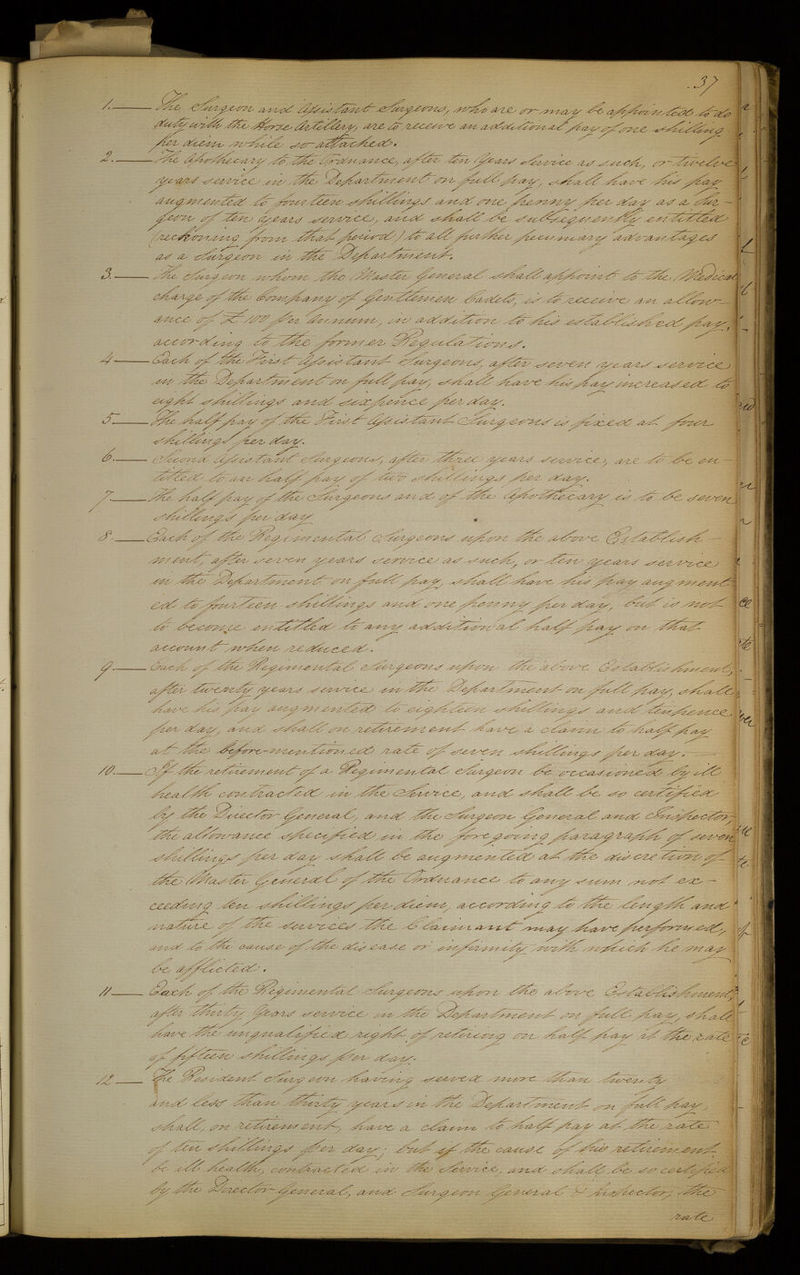 37
1. The Surgeon and Assistant Surgeons, who are or may be appointed to do
duty with the Horse Artillery, are to receive an additional pay of one shilling
per diem while so attached.
2. The Apothecary to the Ordnance, after ten Years Service as such, or twelve
years service in the Department on full pay, shall have his pay
augmented to fourteen shillings and one penny per day as a Sur-
geon of ten years service, and shall be subsequently entitled
(reckoning from that period) to all further pecuniary advantages
as a Surgeon in the Department.
3. The Surgeon whom the Master General shall appoint to the Medical
charge of the Company of Gentlemen Cadets, is to receive an allow-
ance of £100 per Annum, in addition to his established pay,
according to the former Regulations.
4 Each of the First Assistant Surgeons, after seven years service
in the Department on full pay, shall have his pay increased to
eight shillings and sixpence per day.
5 The half pay of the First Assistant Surgeons is fixed at four
shillings per day.
6. Second Assistant Surgeons, after three years service, are to be en-
titled to an half pay of two shillings per day.
7. The half pay of the Surgeons and of the Apothecary is to be seven
shillings per day
8. Each of the Regimental Surgeons upon the above Establish-
ment, after seven years service as such, or ten years service
in the Department on full pay, shall have his pay augment-
ed to fourteen shillings and one penny per day, but is not
to become entitled to any additional half pay on that
account, when reduced.
9. Each of the Regimental Surgeons upon the above Establishment,
after twenty years service in the Department on full pay, shall
have his pay augmented to eighteen shillings and tenpence
per day, and shall on retirement have a claim to half pay
at the before-mentioned rate of seven shillings per day.
10. If the retirement of a Regimental Surgeon be occasioned by ill
health contracted in the Service, and shall be so certified
by the Director General, and the Surgeon General and Inspector,
the allowance specified in the foregoing paragraph of seven
shillings per day shall be augmented at the discretion of
the Master General of the Ordnance to any sum not ex-
ceeding ten shillings per diem, according to the length and
nature of the services the Claimant may have performed,
and to the cause of the disease or infirmity with which he may
be afflicted.
11 Each of the Regimental Surgeons upon the above Establishment,
after thirty Years service in the Department on full pay, shall
have the unqualified right of retiring on half pay at the rate
of fifteen shillings per day.
12 The Resident Surgeon having served more than twenty
and less than thirty years in the Department on full pay,
shall, on retirement, have a claim to half pay at the rate
of ten shillings per day; but if the cause of his retirement
be ill health, contracted in the Service, and shall be so certified
by the Director General, and Surgeon General & Inspector, the
rate